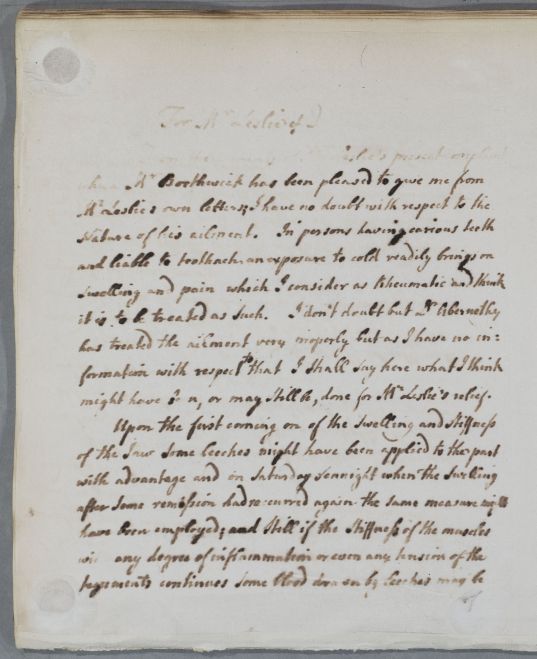 For Mr Leslie of
Leslie's present
Mr Borthwick has been pleased to give me from
Mr Leslies own letters; I have no doubt with respect to the
Nature of his ailment. In persons having carious teeth
and liable to toothach, an exposure to cold readily brings on
Swelling and pain which I consider as Rheumatic and think
it is to be treated as such. I don't doubt but Dr Abernethy
has treated the ailment very properly but as I have no in=
formation with respect to that I shall say here what I think
might have been, or may still be, done for Mr Leslie's relief.
Upon the first coming on of the swelling and stiffness
of the Jaw some Leeches might have been applied to the part
with advantage and on Saturday sennight when the Swelling
after some remission had recurred again the same measure might
have been employed; and still if the stiffness of the muscles
any degree of inflammation or even any tension of the
teguments continues some blood drawn by Leeches may be